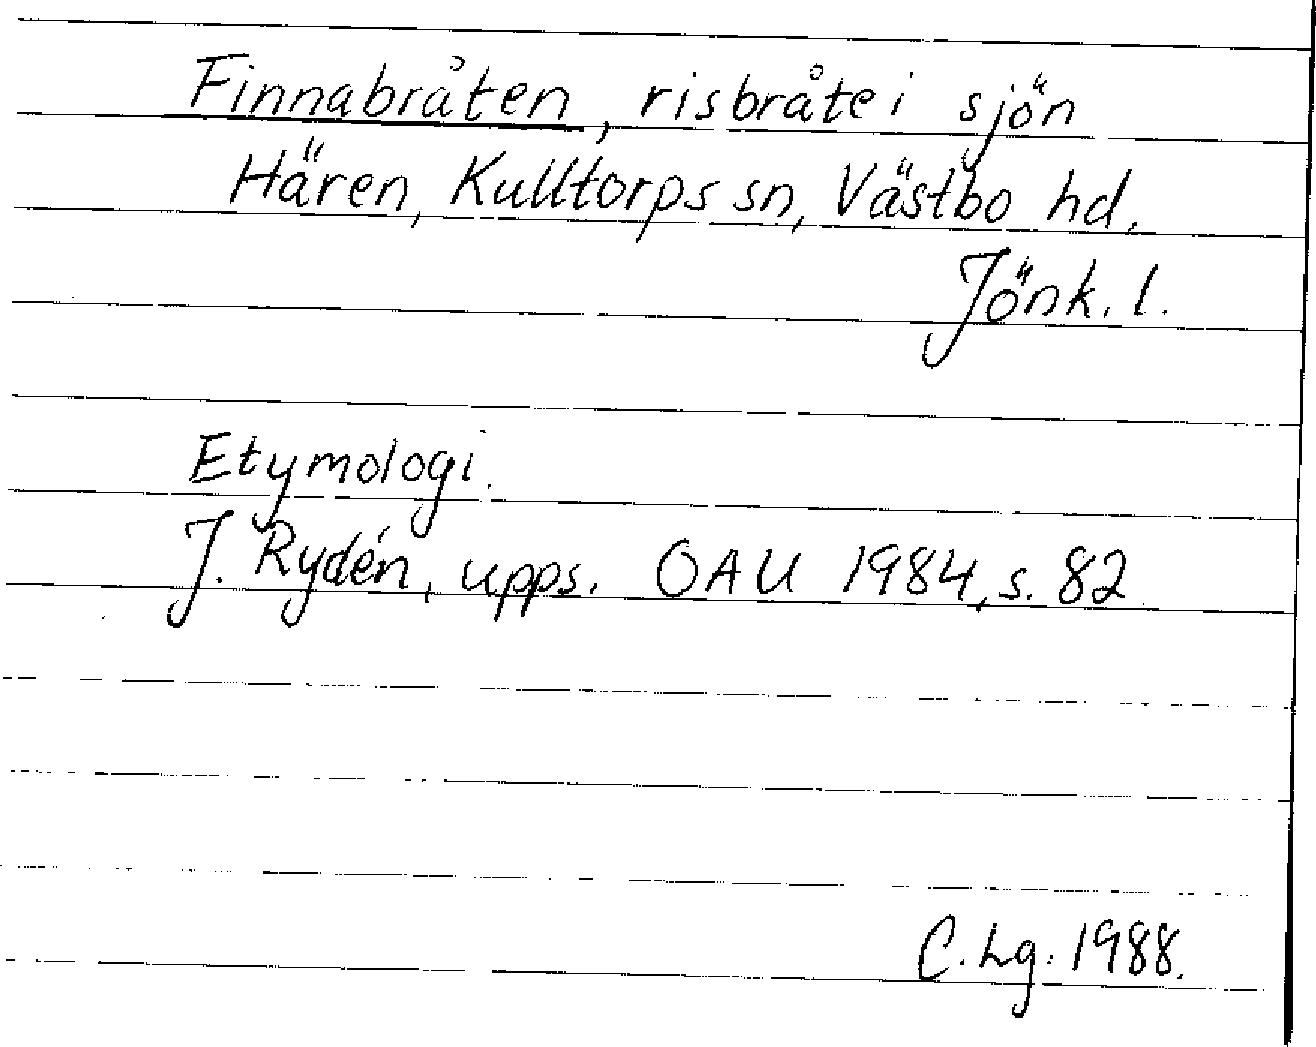 Finnabråten, risbråte i sjön
Hären, Kulltorps sn, Västbo hd.
Jönk. l.
Etymologi.
J. Rydén, upps. OAU 1984, s. 82
C. Lg. 1988.